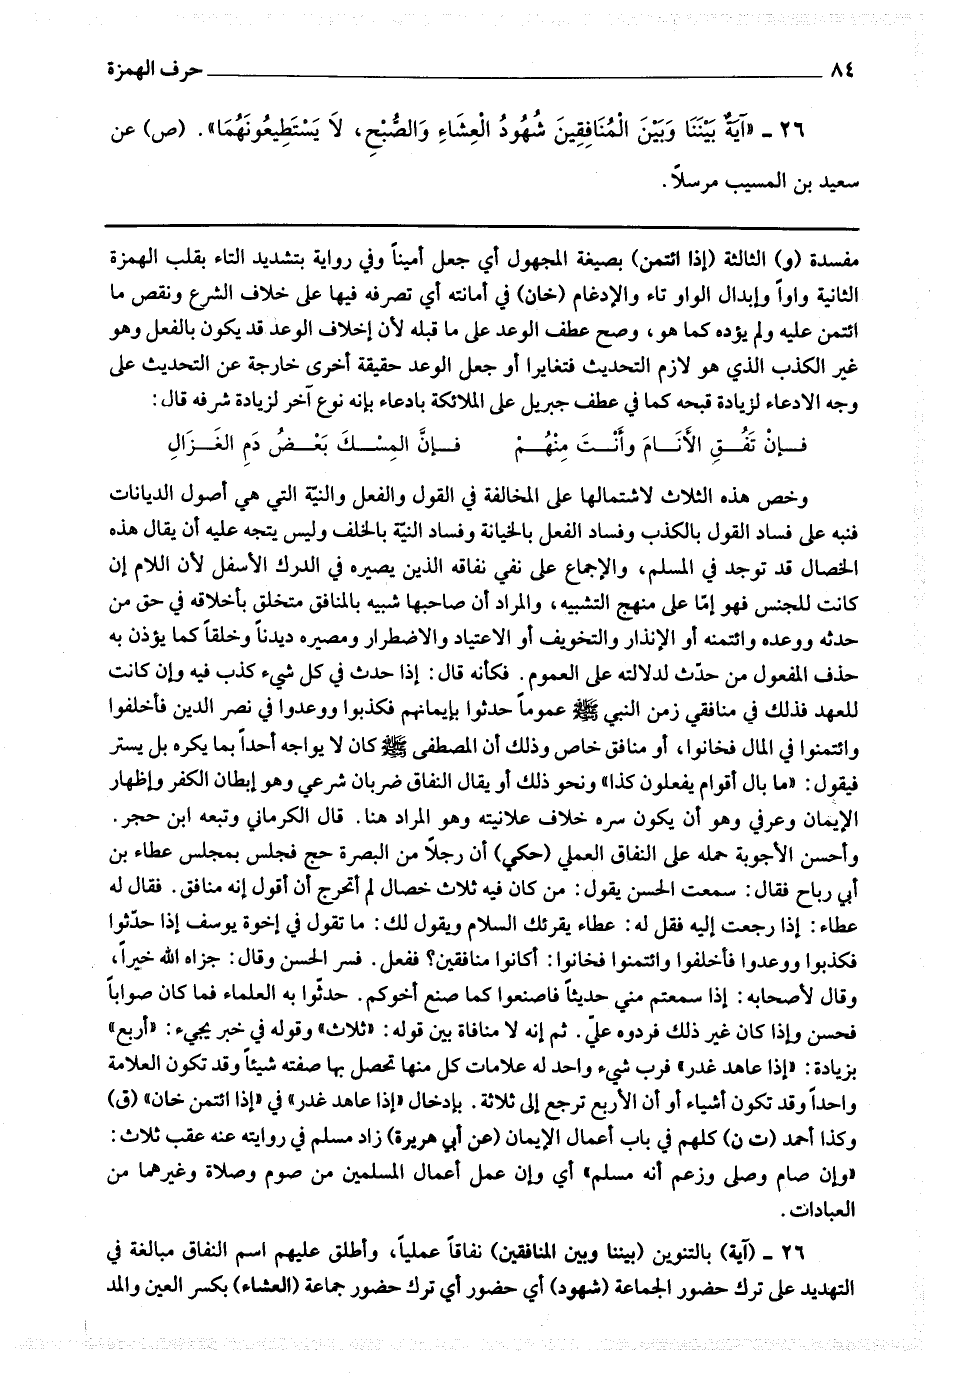 ٨٤ حرف الهمزة
٢٦ ـ «آيَةٌ بَيْنَنَا وَبَيْنَ الْمُنَافِقِينَ شُهُودُ الْعِشَاءِ وَالصُّبْحِ، لَا يَسْتَطِيعُونَهُمَا». (ص) عن
سعيد بن المسيب مرسلاً.
مفسدة (و) الثالثة (إذا ائتمن) بصيغة المجهول أي جعل أميناً وفي رواية بتشديد التاء بقلب الهمزة
الثانية واواً وإبدال الواو تاء والإدغام (خان) في أمانته أي تصرفه فيها على خلاف الشرع ونقص ما
ائتمن عليه ولم يؤده كما هو، وصح عطف الوعد على ما قبله لأن إخلاف الوعد قد يكون بالفعل وهو
غير الكذب الذي هو لازم التحديث فتغايرا أو جعل الوعد حقيقة أخرى خارجة عن التحديث على
وجه الادعاء لزيادة قبحه كما في عطف جبريل على الملائكة بادعاء بإنه نوع آخر لزيادة شرفه قال:
فـإنْ تَفُـقِ الأَنَـامَ وأَنْـتَ مِنْهُـمْ فـإنَّ المِسْـكَ بَعْـضُ دَمِ الغَـزَالِ
وخص هذه الثلاث لاشتمالها على المخالفة في القول والفعل والنيّة التي هي أصول الديانات
فنبه على فساد القول بالكذب وفساد الفعل بالخيانة وفساد النيّة بالخلف وليس يتجه عليه أن يقال هذه
الخصال قد توجد في المسلم، والإجماع على نفي نفاقه الذين يصيره في الدرك الأسفل لأن اللام إن
كانت للجنس فهو إمّا على منهج التشبيه، والمراد أن صاحبها شبيه بالمنافق متخلق بأخلاقه في حق من
حدثه ووعده وائتمنه أو الإنذار والتخويف أو الاعتياد والاضطرار ومصيره ديدناً وخلقاً كما يؤذن به
حذف المفعول من حدّث لدلالته على العموم. فكأنه قال: إذا حدث في كل شيء كذب فيه وإن كانت
للعهد فذلك في منافقي زمن النبي ﷺ عموماً حدثوا بإيمانهم فكذبوا ووعدوا في نصر الدين فأخلفوا
وائتمنوا في المال فخانوا، أو منافق خاص وذلك أن المصطفى ﷺ كان لا يواجه أحداً بما يكره بل يستر
فيقول: «ما بال أقوام يفعلون كذا» ونحو ذلك أو يقال النفاق ضربان شرعي وهو إبطان الكفر وإظهار
الإيمان وعرفي وهو أن يكون سره خلاف علانيته وهو المراد هنا. قال الكرماني وتبعه ابن حجر.
وأحسن الأجوبة حمله على النفاق العملي (حكي) أن رجلاً من البصرة حج فجلس بمجلس عطاء بن
أبي رباح فقال: سمعت الحسن يقول: من كان فيه ثلاث خصال لم أتحرج أن أقول إنه منافق. فقال له
عطاء: إذا رجعت إليه فقل له: عطاء يقرئك السلام ويقول لك: ما تقول في إخوة يوسف إذا حدّثوا
فكذبوا ووعدوا فأخلفوا وائتمنوا فخانوا: أكانوا منافقين؟ ففعل. فسر الحسن وقال: جزاه الله خيراً،
وقال لأصحابه: إذا سمعتم مني حديثاً فاصنعوا كما صنع أخوكم. حدثّوا به العلماء فما كان صواباً
فحسن وإذا كان غير ذلك فردوه عليّ. ثم إنه لا منافاة بين قوله: «ثلاث» وقوله في خبر يجيء: «أربع»
بزيادة: «إذا عاهد غدر» فرب شيء واحد له علامات كل منها تحصل بها صفته شيئاً وقد تكون العلامة
واحداً وقد تكون أشياء أو أن الأربع ترجع إلى ثلاثة. بإدخال «إذا عاهد غدر» في «إذا ائتمن خان» (ق)
وكذا أحمد (ت ن) كلهم في باب أعمال الإيمان (عن أبي هريرة) زاد مسلم في روايته عنه عقب ثلاث:
«وإن صام وصلى وزعم أنه مسلم» أي وإن عمل أعمال المسلمين من صوم وصلاة وغيرهما من
العبادات.
٢٦ ـ (آية) بالتنوين (بيننا وبين المنافقين) نفاقاً عملياً، وأطلق عليهم اسم النفاق مبالغة في
التهديد على ترك حضور الجماعة (شهود) أي حضور أي ترك حضور جماعة (العشاء) بكسر العين والمد